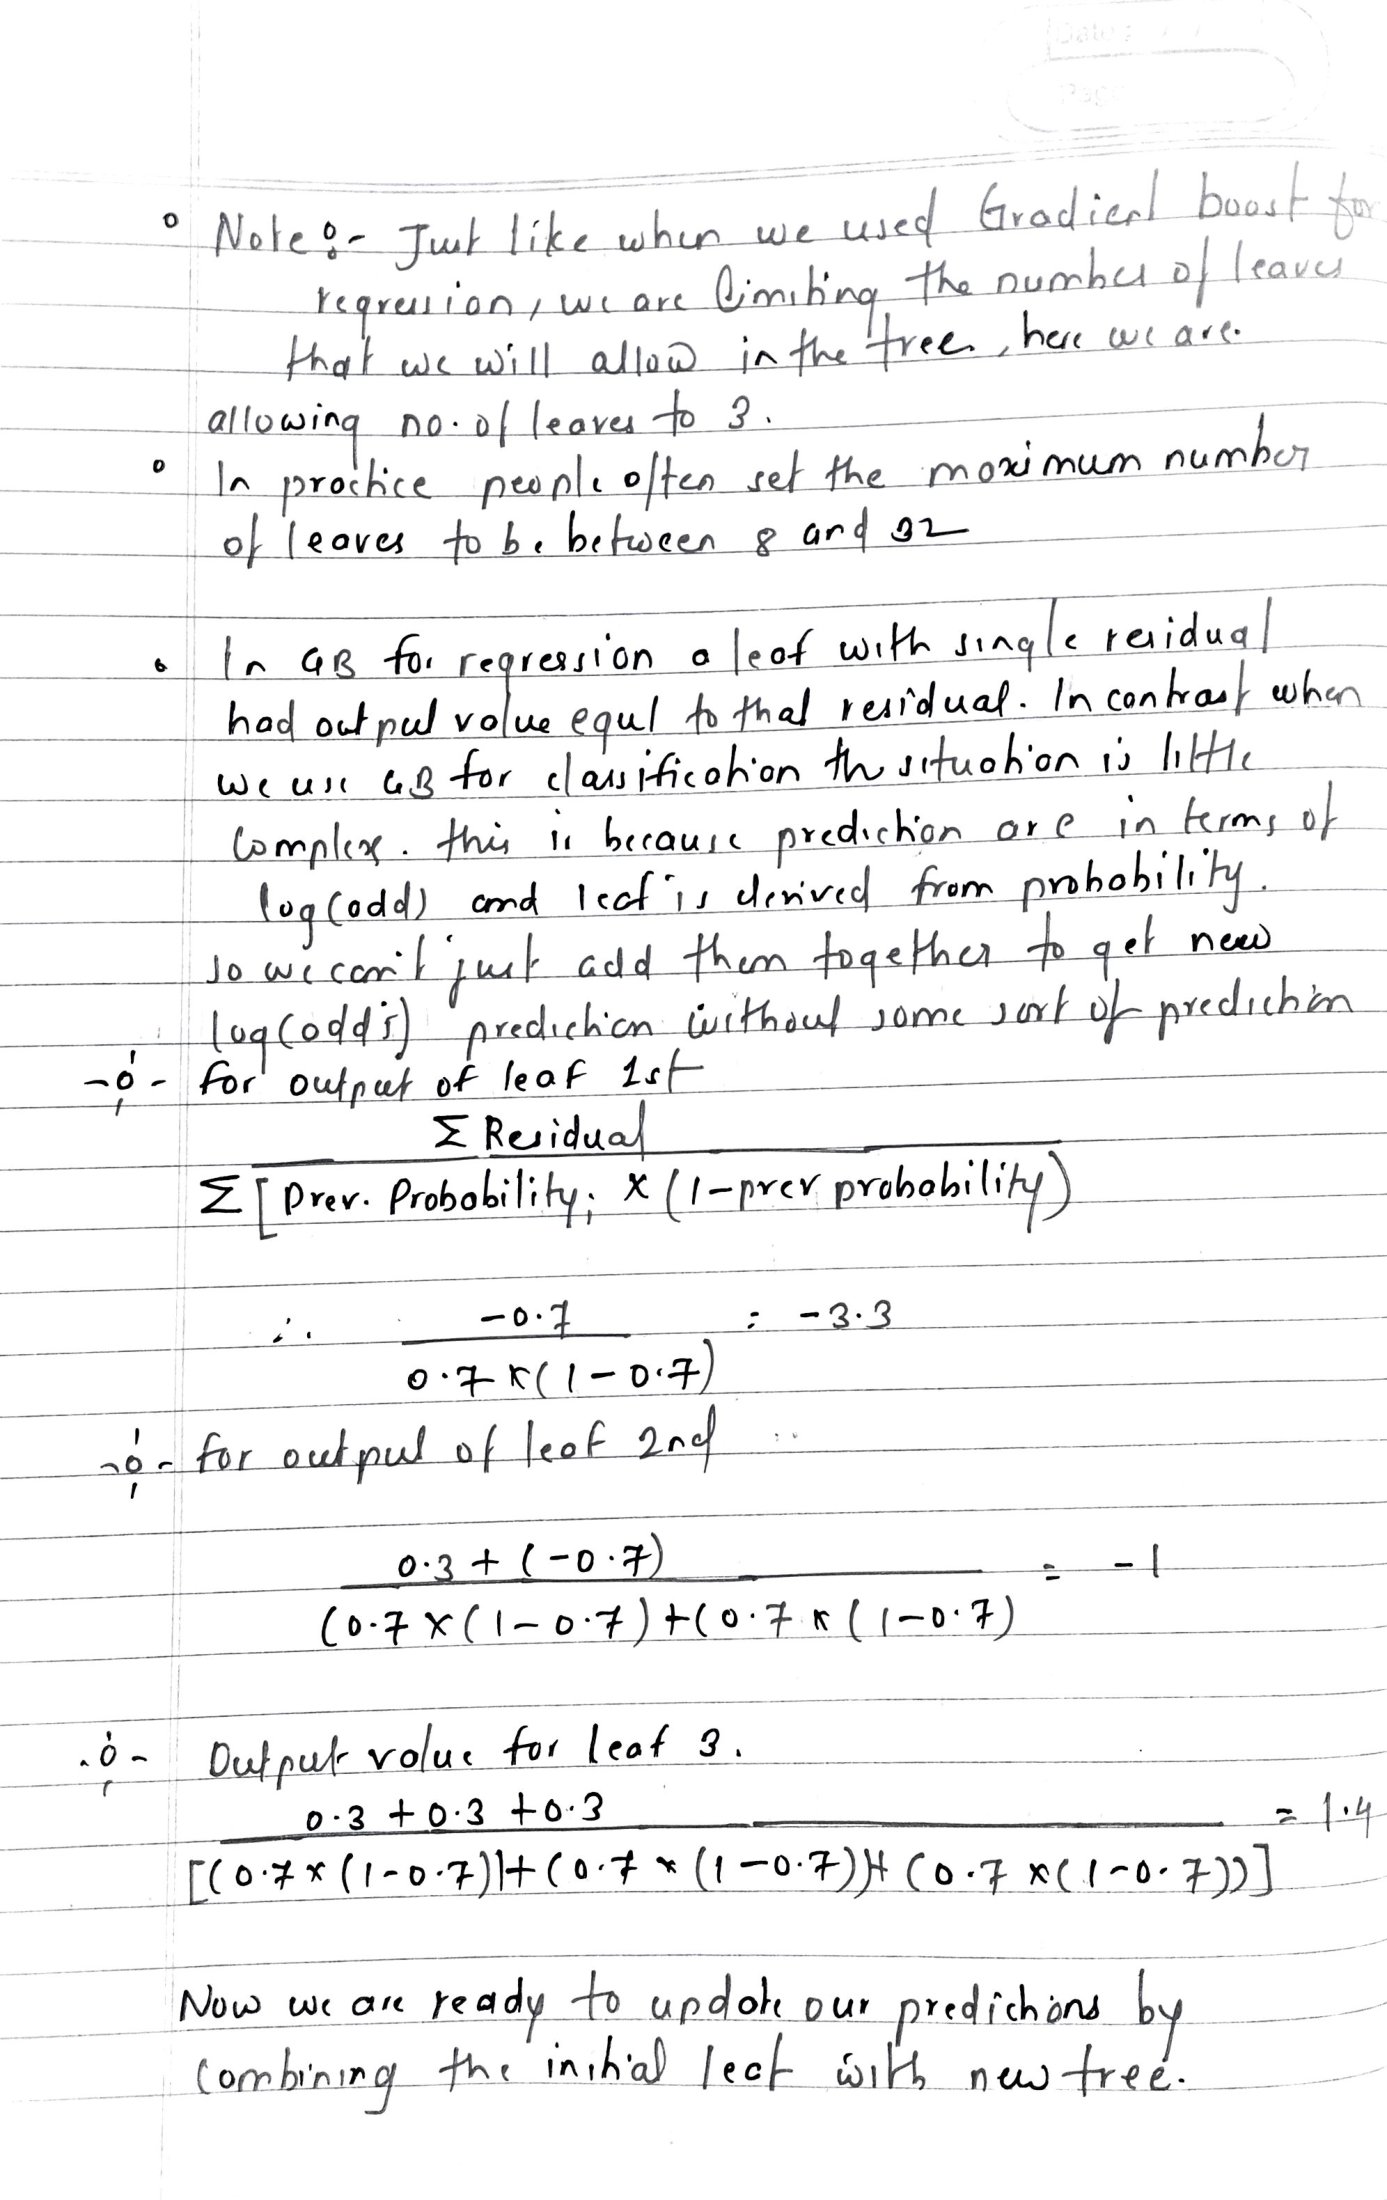 Date :
Page
Note :- Just like when we used Gradient boost for
regression, we are limiting the number of leaves
that we will allow in the tree, here we are.
allowing no. of leaves to 3.
In practice people often set the maximum number
of leaves to be between 8 and 32
In GB for regression a leaf with single residual
had output value equl to that residual. In contrast when
we use GB for classification th situation is little
complex. this is because prediction are in terms of
log(odd) and leaf is derived from probability.
so we can't just add them together to get new
log(odd's) prediction without some sort of prediction
for output of leaf 1st
Σ Residual
Σ [ Prev. Probability; × (1-prev probability)
∴ -0.7 = -3.3
0.7 × (1-0.7)
for output of leaf 2nd
0.3 + (-0.7) = -1
(0.7 × (1-0.7) + (0.7 × (1-0.7)
Output value for leaf 3.
0.3 + 0.3 + 0.3 = 1.4
[(0.7 × (1-0.7)) + (0.7 × (1-0.7)) + (0.7 × (1-0.7))]
Now we are ready to update our predictions by
combining the initial leaf with new tree.